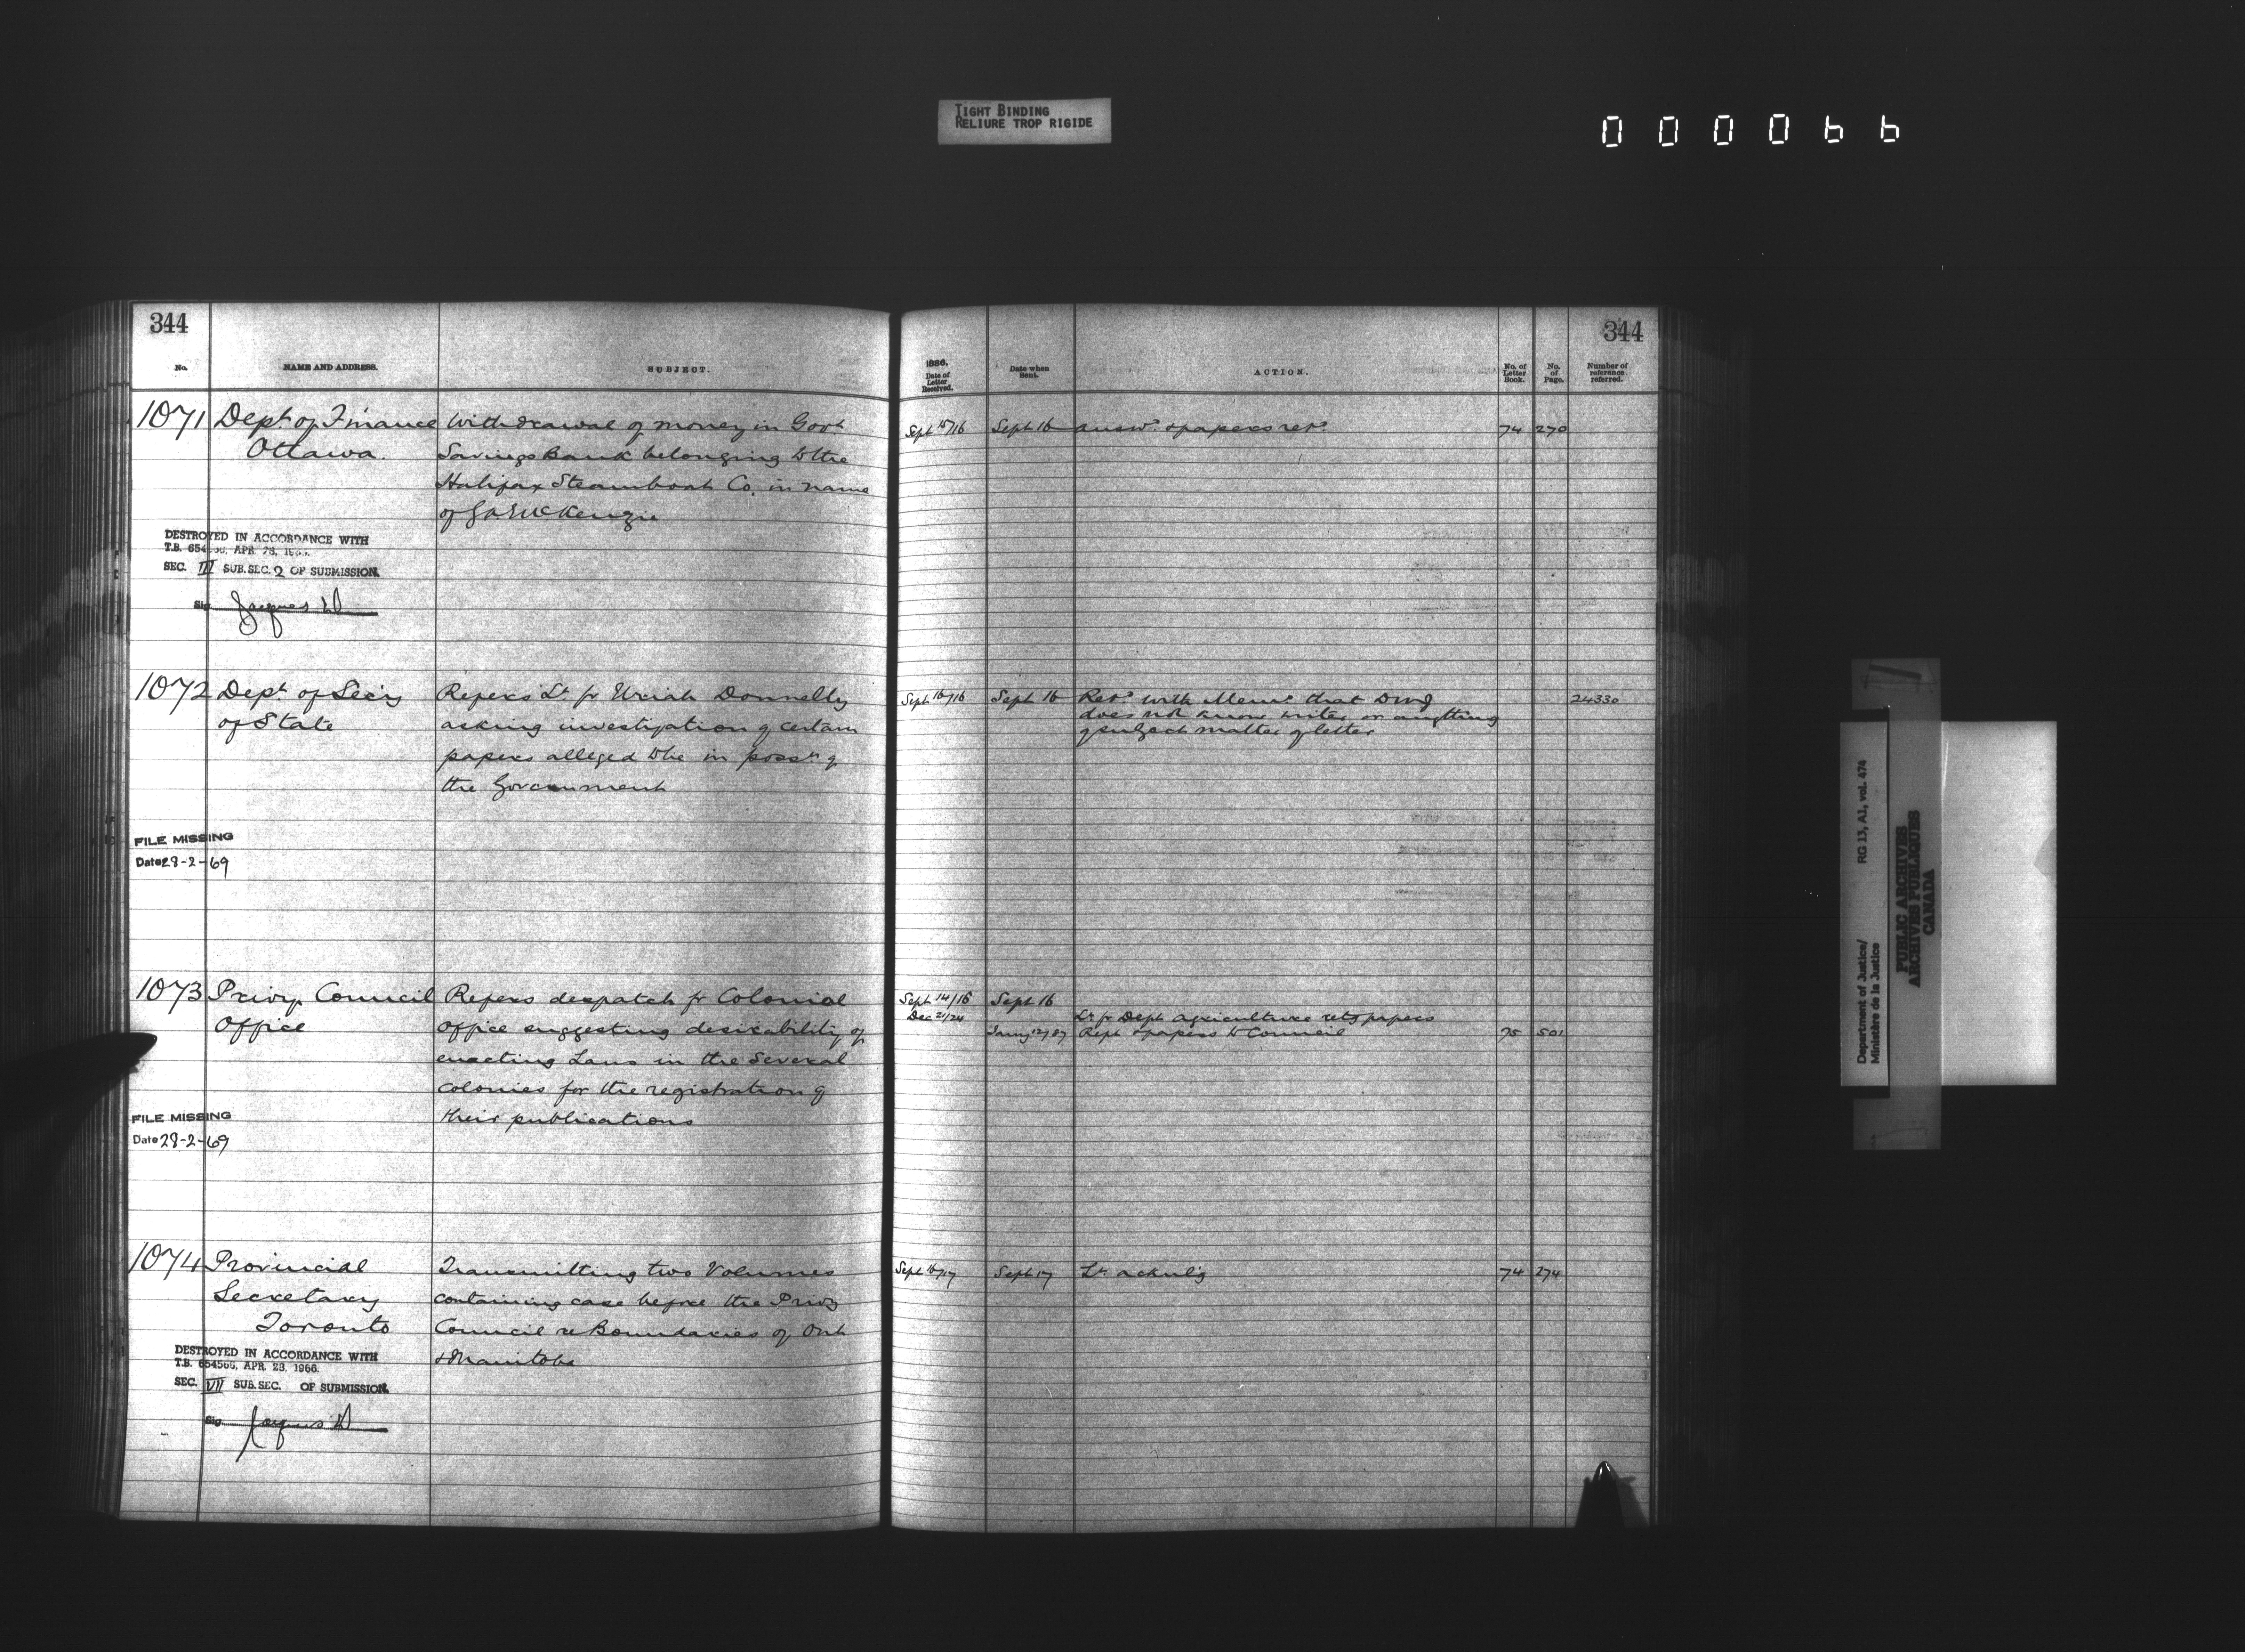 TIGHT BINDING
RELIURE TROP RIGIDE
000066
344
No.
NAME AND ADDRESS.
SUBJECT.
1071
Dept. of Finance
Ottawa.
Withdrawal of money in Govt.
Savings Bank belonging to the
Halifax Steamboat Co. in name
of McKenzie
DESTROYED IN ACCORDANCE WITH
T.B. 654566, APR. 28, 1966.
SEC. III SUB.SEC. 2 OF SUBMISSION.
Sig. Jacques
1072
Dept of Secy
of State
Refers Lr. fr Uriah Donnelly
asking investigation of certain
papers alleged to be in possn of
the Government
FILE MISSING
Date 28-2-69
1073
Privy Council
Office
Refers despatch fr Colonial
Office suggesting desirability of
enacting Laws in the Several
Colonies for the registration of
their publications
FILE MISSING
Date 28-2-69
1074
Provincial
Secretary
Toronto
Transmitting two Volumes
containing case before the Privy
Council re Boundaries of Ont
& Manitoba
DESTROYED IN ACCORDANCE WITH
T.B. 654566, APR. 28, 1966.
SEC. VII SUB.SEC. OF SUBMISSION.
Sig. Jacques
344
1886.
Date of
Letter
Received.
Date when
Sent.
ACTION.
No. of
Letter
Book.
No.
of
Page.
Number of
reference
referred.
Sept 15/16 Sept 16 answd. & papers retd. 74 270
Sept 16/16 Sept 16 Retd. with Memo that
does not know writer or anything
of subject matter of letter
24330
Sept 14/16 Sept 16
Dec 21/24 Lr fr Dept Agriculture retg papers
Janny 12/87 Rept & papers to Council 75 501
Sept 16/17 Sept 17 Lr. acknlg 74 274
Department of Justice/
Ministère de la Justice
RG 13, A1, vol. 474
PUBLIC ARCHIVES
ARCHIVES PUBLIQUES
CANADA